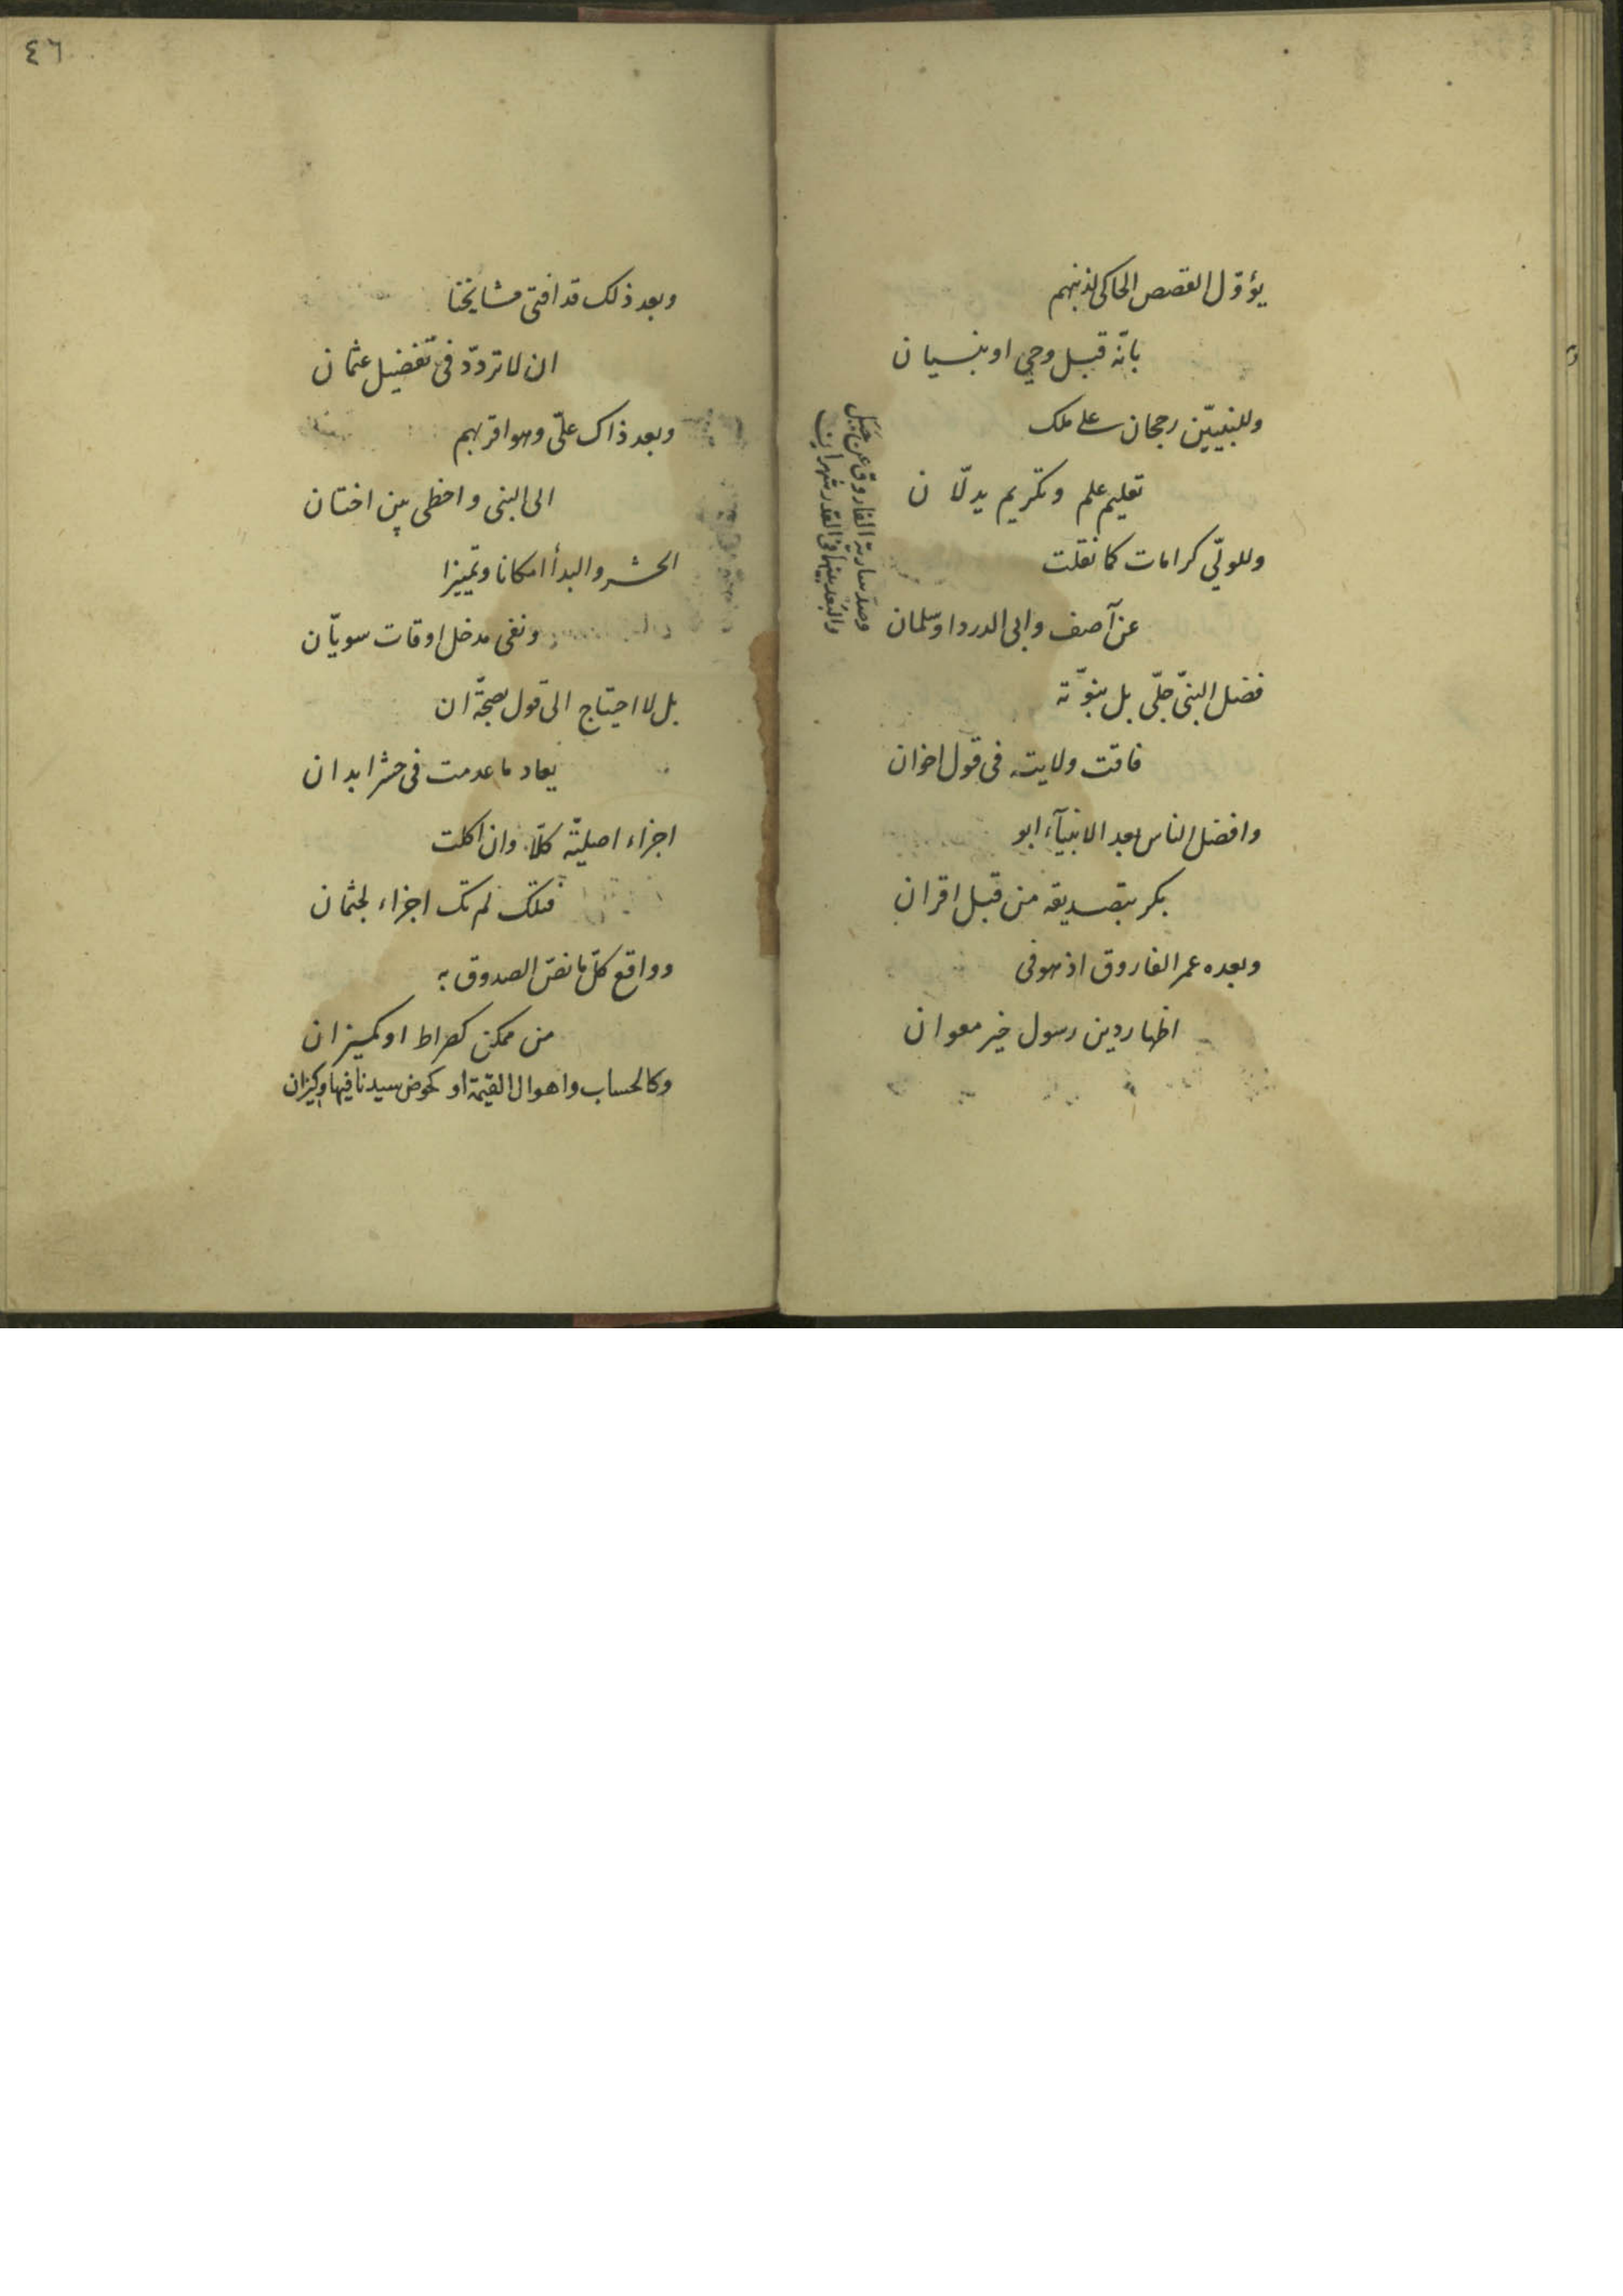 يؤوّل القصص الحاكی لذنبهم
بانّه قبل وحي او بنسيان
وللنبيّين رجحان على ملك
تعليم علم وتكريم يدلّان
وللوليّ كرامات كما نقلت
عن آصف وابی الدردا وسلمان
وصدّ سارية الفاروق عن جبل
والبعد بينهما فی القدر شهران
فضل النبیّ جلیّ بل نبوّته
فاقت ولايته فی قول اخوان
وافضل الناس بعد الانبيآء ابو
بكر بتصديقه من قبل اقران
وبعده عمر الفاروق اذ هو فی
اظهار دين رسول خير معوان
٤٦
وبعد ذلك قد افتی مشايخنا
ان لا تردّد فی تفضيل عثمان
وبعد ذاك علیّ وهو اقربهم
الی النبی واحظی بين اختان
الحشر والبدأ امكانا وتمييزا
ونفی مدخل اوقات سويّان
بل لا احتياج الی قول بصحّة ان
يعاد ما عدمت فی حشر ابدان
اجزاء اصليّة كلّا وان اكلت
فتلك لم تك اجزاء لجثمان
وواقع كلّ ما نصّ الصدوق به
من ممكن كصراط او كميزان
وكالحساب واهوال القيمة او كحوض سيدنا فيها وكيزان